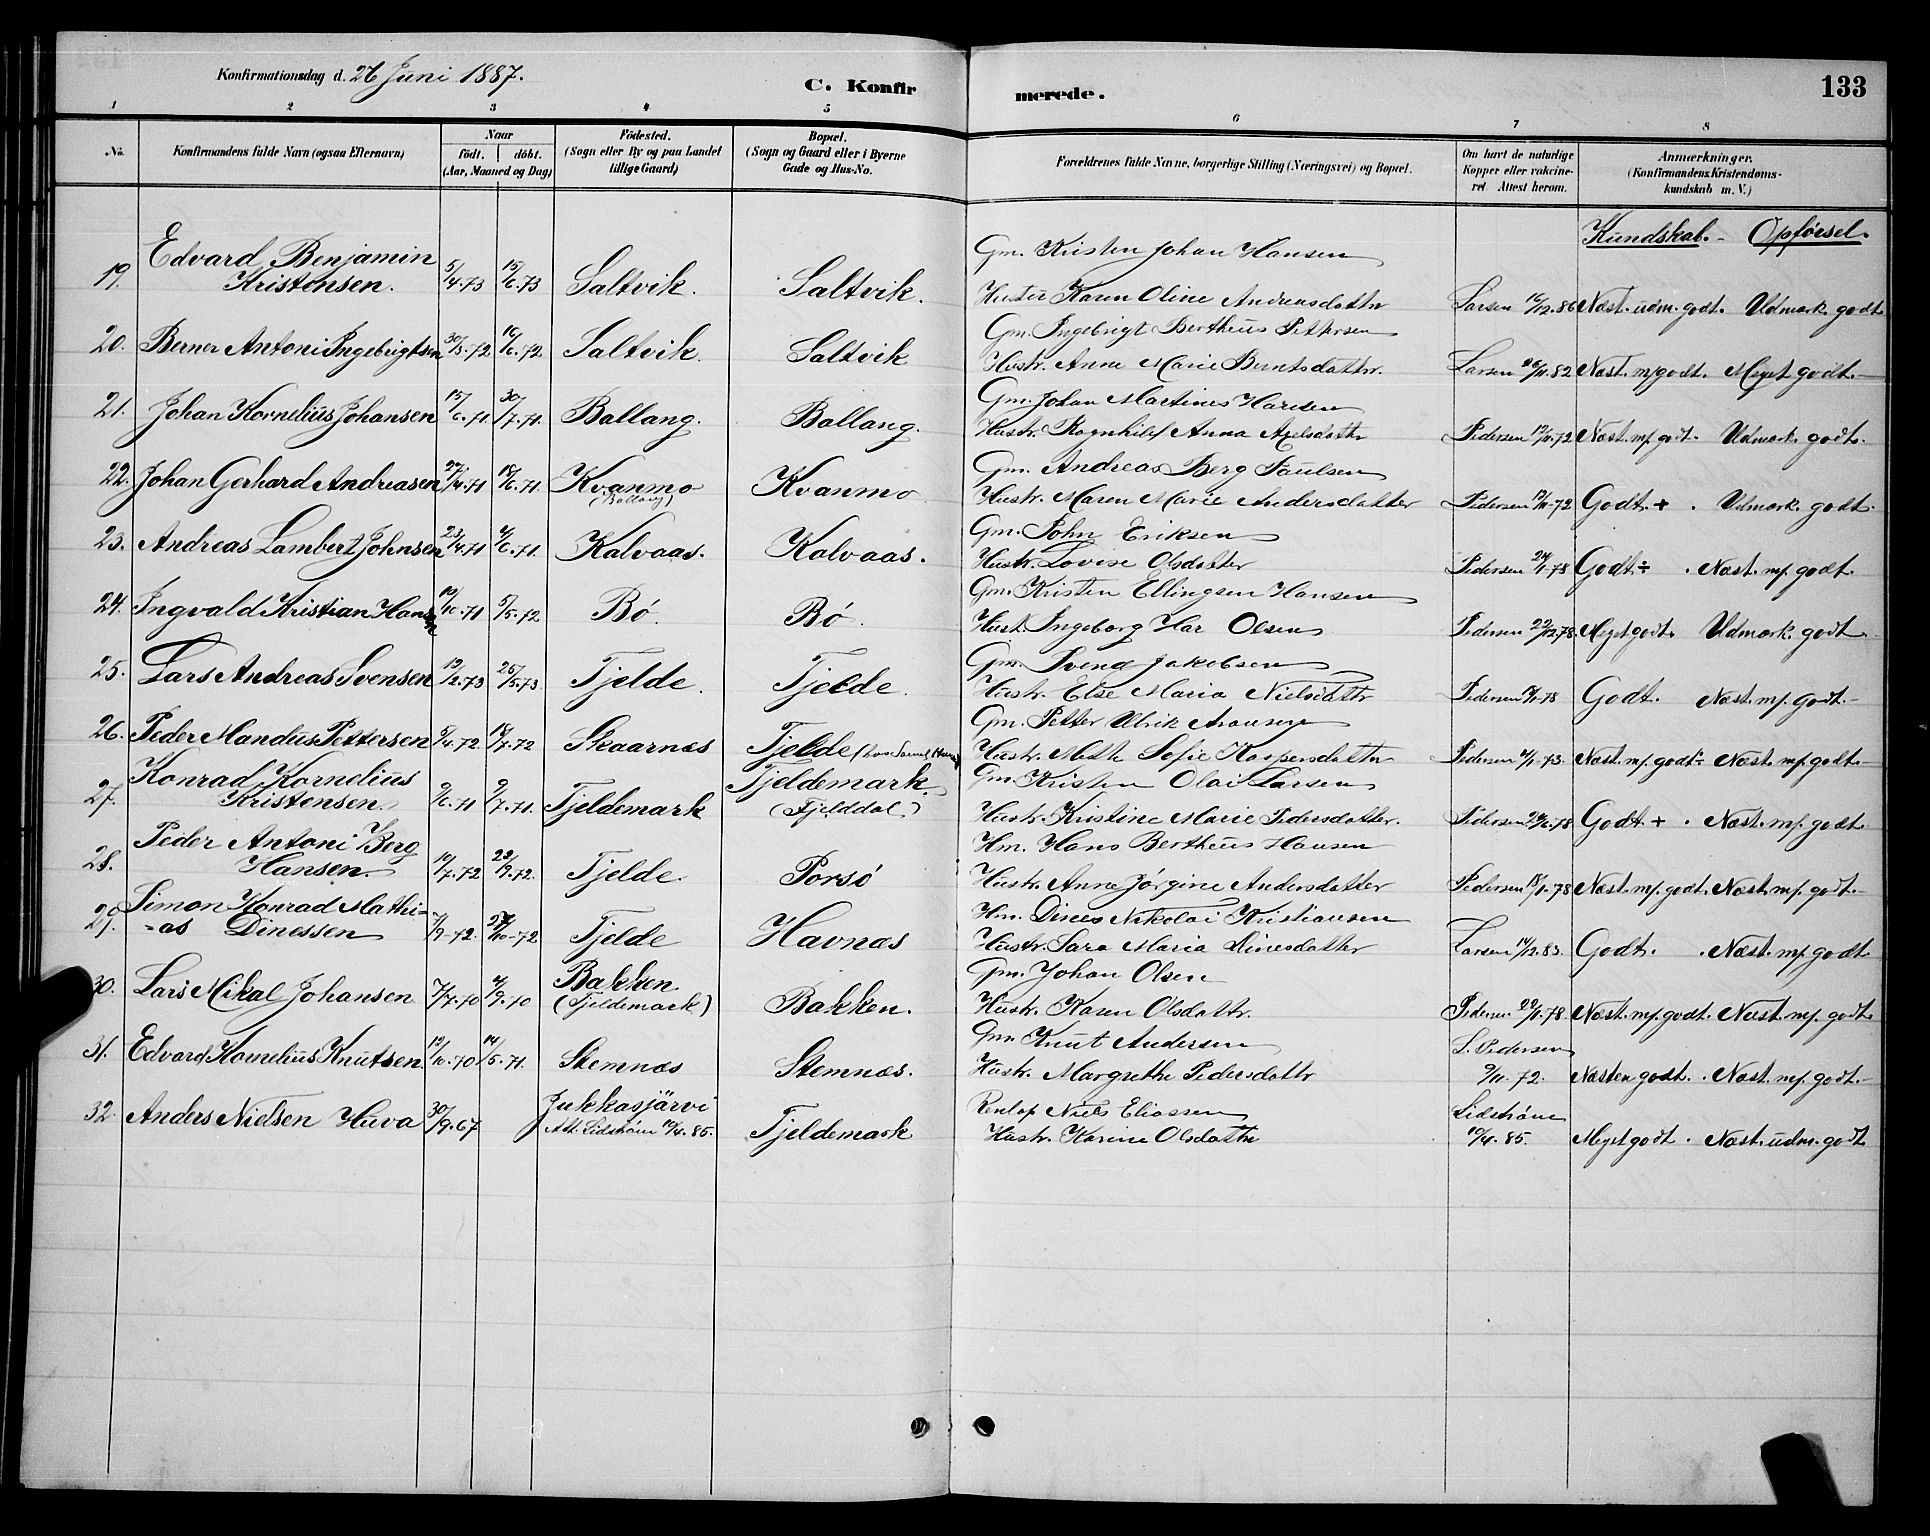 Konfirmationsdag d. 26 Juni 1887.
C. Konfirmerede.
133
1 2 3 4 5 6 7 8
No.
Konfirmandens fulde Navn (ogsaa Efternavn)
Naar
födt. döbt.
(Aar, Maaned og Dag)
Födested.
(Sogn eller By og paa Landet
tillige Gaard)
Bopæl.
(Sogn og Gaard eller i Byerne
Gade og Hus-No.
Forældrenes fulde Navne, borgerlige Stilling (Næringsvei) og Bopæl.
Om havt de naturlige
Kopper eller vakcine-
ret Attest herom.
Anmærkninger.
(Konfirmandens Kristendoms-
kundskab m. V.)
Kundskab. - Opførsel.
Edvard Benjamin Gm. Kristen Johan Hansen
19. Kristensen. 5/4.73 15/6.73 Saltvik. Saltvik. Hustru Karen Oline Andreasdatter Larsen 16/12.86 Næst. udm. godt. Udmærk. godt
Gm. Ingebrigt Bertheus Pettersen
20. Berner Antoni Ingebrigtsen 30/3.72 16/6.72 Saltvik. Saltvik Hustr. Anne Marie Berntsdatter. Larsen 26/11.82 Næst. m/godt. Meget godt.
Gm. Johan Martines Hansen
21. Johan Kornelius Johansen 15/6.71 30/7.71. Ballang. Ballang. Hustr. Ragnhild Anna Axelsdatter Pedersen 12/11.72 Næst. m/godt. Udmærk. godt.
Gm. Andreas Berg Paulsen
22. Johan Gerhard Andreasen 27/4.71 18/6.71. Kvanmo (Ballang) Kvanmo Hustr. Maren Marie Andersdatter Pedersen 12/11.72 Godt + . Udmærk. godt.
Gm. John Eriksen
23. Andreas Lambert Johnsen 23/4.71 4/6.71. Kalvaas. Kalvaas. Hustr. Lovise Olsdatter Pedersen 24/1.78 Godt ÷ . Næst. m/. godt.
Gm. Kristen Ellingsen Hansen
24. Ingvald Kristian Hansen 19/10.71 5/5.72 Bø. Bø. Hust. Ingeborg Har Olsen Pedersen 22/12.78. Meget godt. Udmærk. godt.
Gm. Svend Jakobsen
25. Lars Andreas Svensen 12/2.73 25/5.73 Tjelde. Tjelde. Hustr. Else Maria Nielsdattr Pedersen /1.78 Godt. Næst. m/. godt.
Gm. Petter Ulrik
26. Peder Mandus Pettersen 9/4.72 18/7.72 Skaarnes Tjelde Hustr. Mette Sofie Kaspersdatter Pedersen 21/1.73. Næst. m/. godt. Næst. m/. godt.
Konrad Kornelius Tjeldemark. Gm. Kristen Olai Larsen
27. Kristensen. 9/6.71 9/7.71. Tjeldemark (Fjelddal.) Hustr. Kristine Marie Pedersdatter. Pedersen 78 Godt + . Næst. m/. godt.
Peder Antoni Berg Hm. Hans Bertheus Hansen
28. Hansen. 10/7.72 22/9.72. Tjelde. Porsø Hustr. Anne Jørgine Andersdatter Pedersen 18/1.78 Næst. m/. godt. Næst. m/. godt.
Simon Konrad Mathi- Hm. Dines Nikolai Kristiansen
29. -as Dinessen 7/9-72. 27/10-72 Tjelde Havnæs Hustr. Sara Maria Dinesdatter Larsen 14/12.83. Godt. . Næst. m/. godt
Bakken. Gm. Johan Olsen
30. Lars Mikal Johansen 7/7.70 4/9.70 (Tjeldemark) Bakken. Hustr. Karen Olsdattr. Pedersen 22/1.78. Næst. m/. godt. Næst. m/. godt
Gm. Knut Andersen L. Pedersen
31. Edvard Kornelius Knutsen 12/10.70 14/5.71. Stemnæs Stemnæs. Hustr. Margrethe Pedersdattr 9/11.72. Næsten godt. . Næst. m/. godt.
Jukkasjärvi Niels Eliassen Lidstrøm
32. Anders Nielsen Huva 30/9.67 Att. Lidstrøm 10/4.85. Tjeldemark Hustr. Karine Olsdatter 10/4.85. Meget godt . Næst. udm. godt